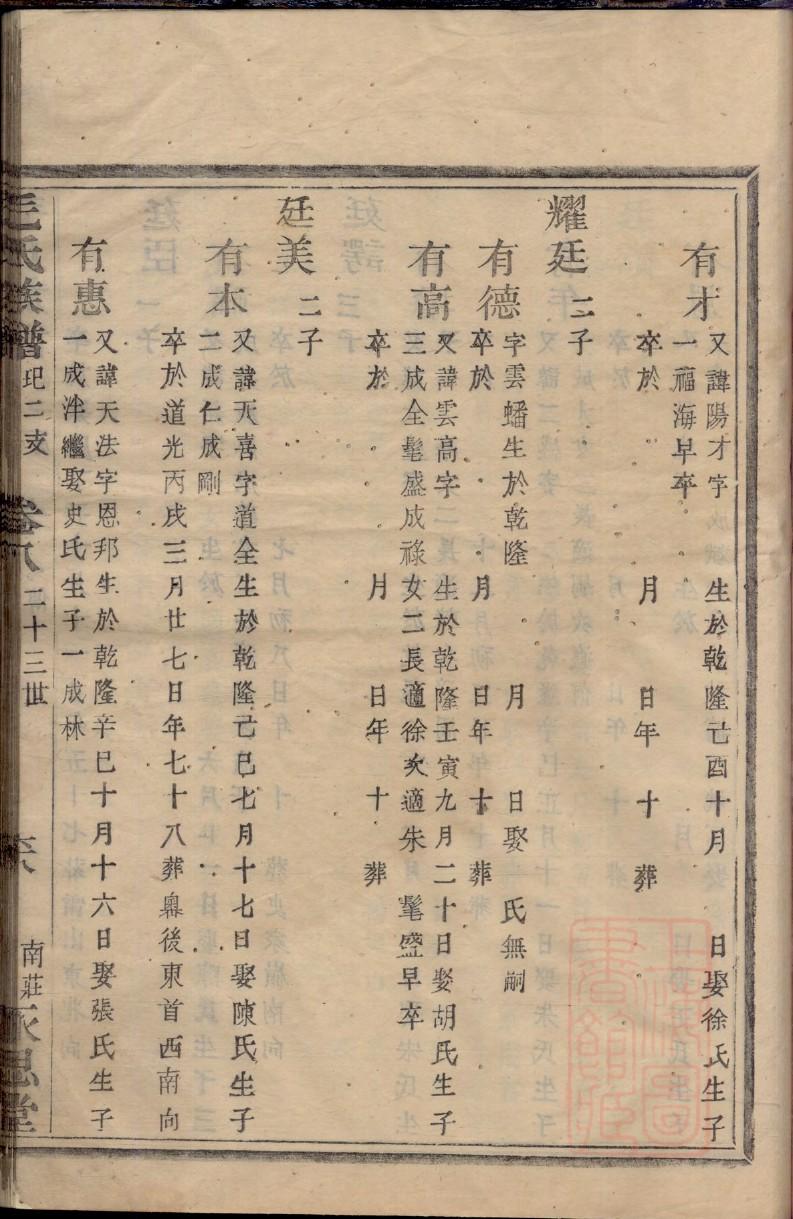 有才 又諱陽才字 生於乾隆己酉十月 日娶徐氏生子
一福海早卒
卒於 月 日年 十 葬
耀廷 二子
有德 字雲蟠生於乾隆 月 日娶 氏無嗣
卒於 月 日年 十 葬
有高 又諱雲高字 生於乾隆壬寅九月二十日娶胡氏生子
三成全髦盛成祿女二長適徐次適朱 髦盛早卒
卒於 月 日年 十 葬
廷美 二子
有本 又諱天喜字道全生於乾隆己巳七月十七日娶陳氏生子
二成仁成剛
卒於道光丙戌三月廿七日年七十八葬塢後東首西南向
有惠 又諱天法字恩邦生於乾隆辛巳十月十六日娶張氏生子
一成泮繼娶史氏生子一成林
毛氏族譜 玘二支 卷八 二十三世 六 南莊永思堂